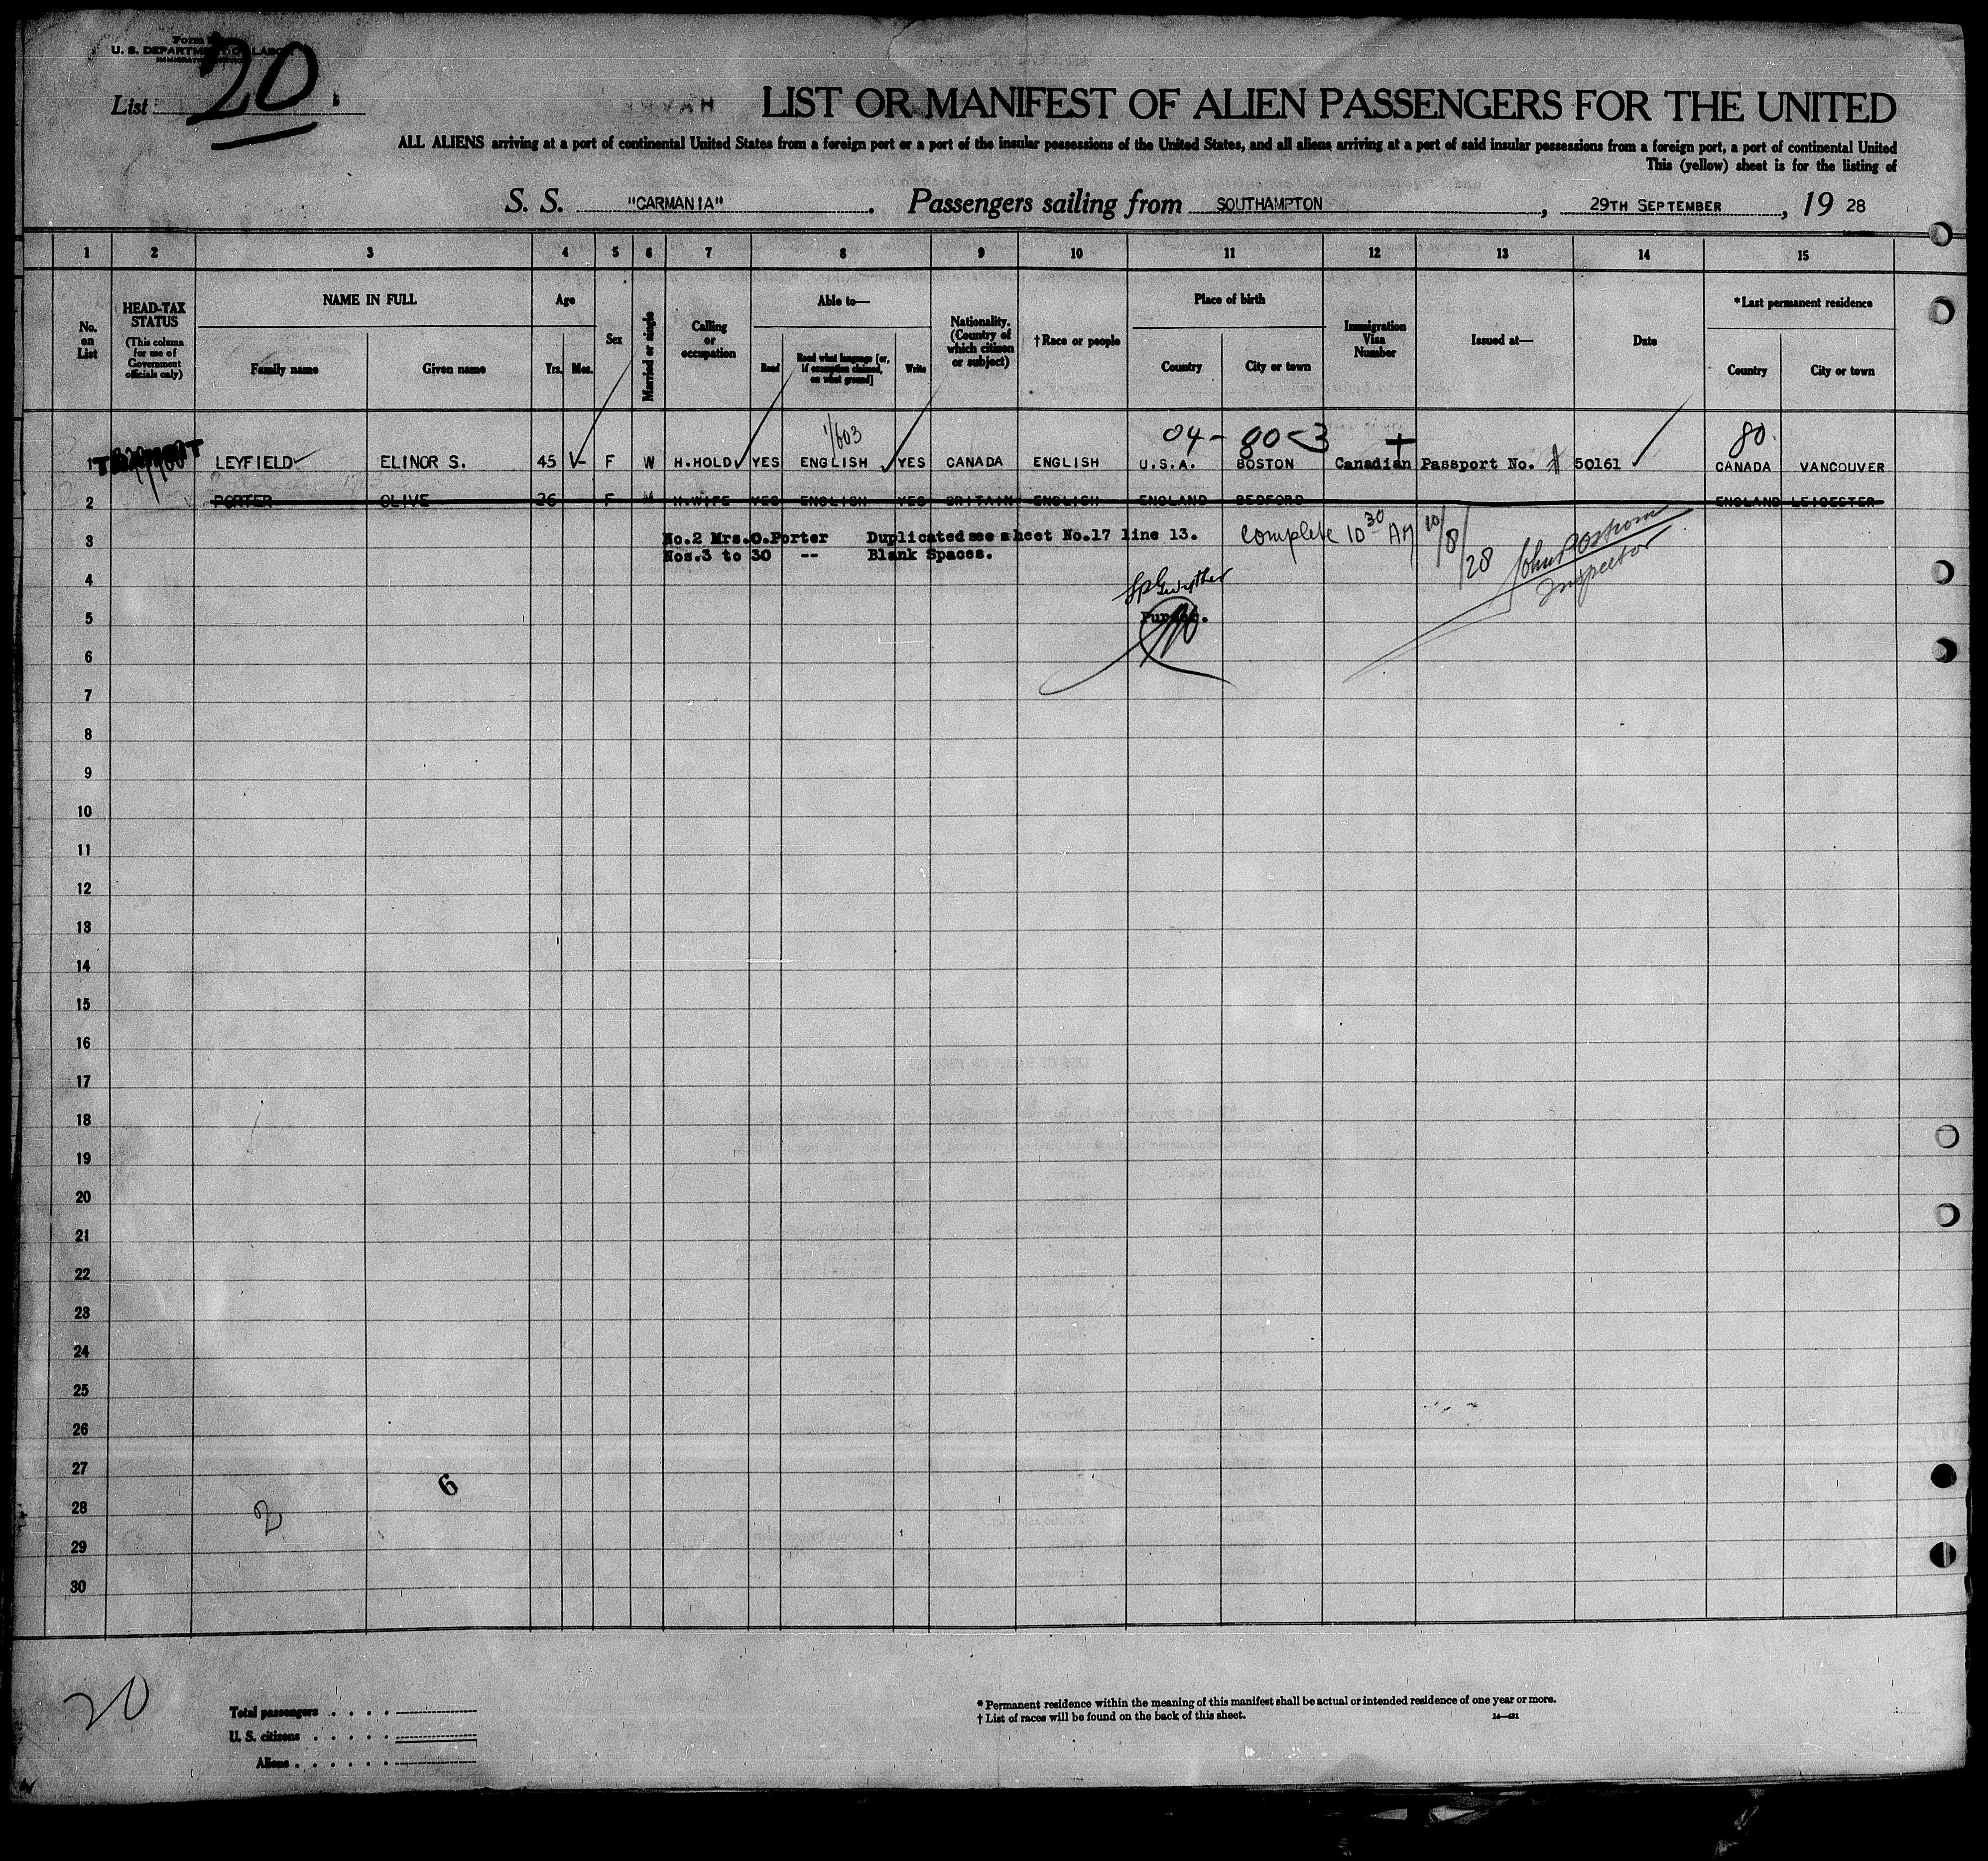 U. S. DEPARTMENT OF LABOR
List 20
LIST OR MANIFEST OF ALIEN PASSENGERS FOR THE UNITED
ALL ALIENS arriving at a port of continental United States from a foreign port or a port of the insular possessions of the United States, and all aliens arriving at a port of said insular possessions from a foreign port, a port of continental United
This (yellow) sheet is for the listing of
S. S. "CARMANIA". Passengers sailing from SOUTHAMPTON, 29TH SEPTEMBER, 19 28
1 2 3 4 5 6 7 8 9 10 11 12 13 14 15
No. on List
HEAD-TAX STATUS (This column for use of Government officials only)
NAME IN FULL
Family name Given name
Age
Yrs. Mos.
Sex
Married or single
Calling or occupation
Able to—
Read Read what language [or, if exemption claimed, on what ground] Write
Nationality. (Country of which citizen or subject)
†Race or people
Place of birth
Country City or town
Immigration Visa Number
Issued at—
Date
*Last permanent residence
Country City or town
1/603 04- 80<3 + 80
1 LEYFIELD ELINOR S. 45 F W H.HOLD YES ENGLISH YES CANADA ENGLISH U.S.A. BOSTON Canadian Passport No. # 50161 CANADA VANCOUVER
2 PORTER OLIVE 26 F M H.WIFE YES ENGLISH YES BRITAIN ENGLISH ENGLAND BEDFORD ENGLAND LEICESTER
3 No.2 Mrs.O.Porter Duplicated see sheet No.17 line 13. Complete 10 30 AM 10/8/28
Nos.3 to 30 -- Blank Spaces. Inspector
4
5 Purser.
6
7
8
9
10
11
12
13
14
15
16
17
18
19
20
21
22
23
24
25
26
27 6
28 2
29
30
20
Total passengers . . . .
U. S. citizens . . . . .
Aliens . . . . . .
* Permanent residence within the meaning of this manifest shall be actual or intended residence of one year or more.
† List of races will be found on the back of this sheet. 14—431